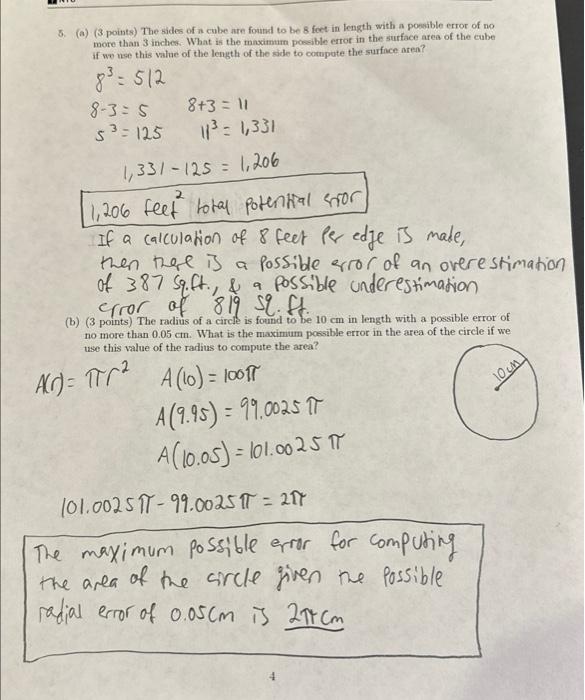 5. (a) (3 points) The sides of a cube are found to be 8 feet in length with a possible error of no
more than 3 inches. What is the maximum possible error in the surface area of the cube
if we use this value of the length of the side to compute the surface area?
8³ = 512
8-3 = 5 8+3 = 11
5³ = 125 11³ = 1,331
1,331 - 125 = 1,206
1,206 feet² total potential error
If a calculation of 8 feet per edge is made,
then there is a possible error of an overestimation
of 387 sq.ft., & a possible underestimation
error of 819 sq. ft.
(b) (3 points) The radius of a circle is found to be 10 cm in length with a possible error of
no more than 0.05 cm. What is the maximum possible error in the area of the circle if we
use this value of the radius to compute the area?
A(r) = πr² A(10) = 100π
10cm
A(9.95) = 99.0025 π
A(10.05) = 101.0025 π
101.0025π - 99.0025π = 2π
The maximum possible error for computing
the area of the circle given the possible
radial error of 0.05cm is 2π cm
4